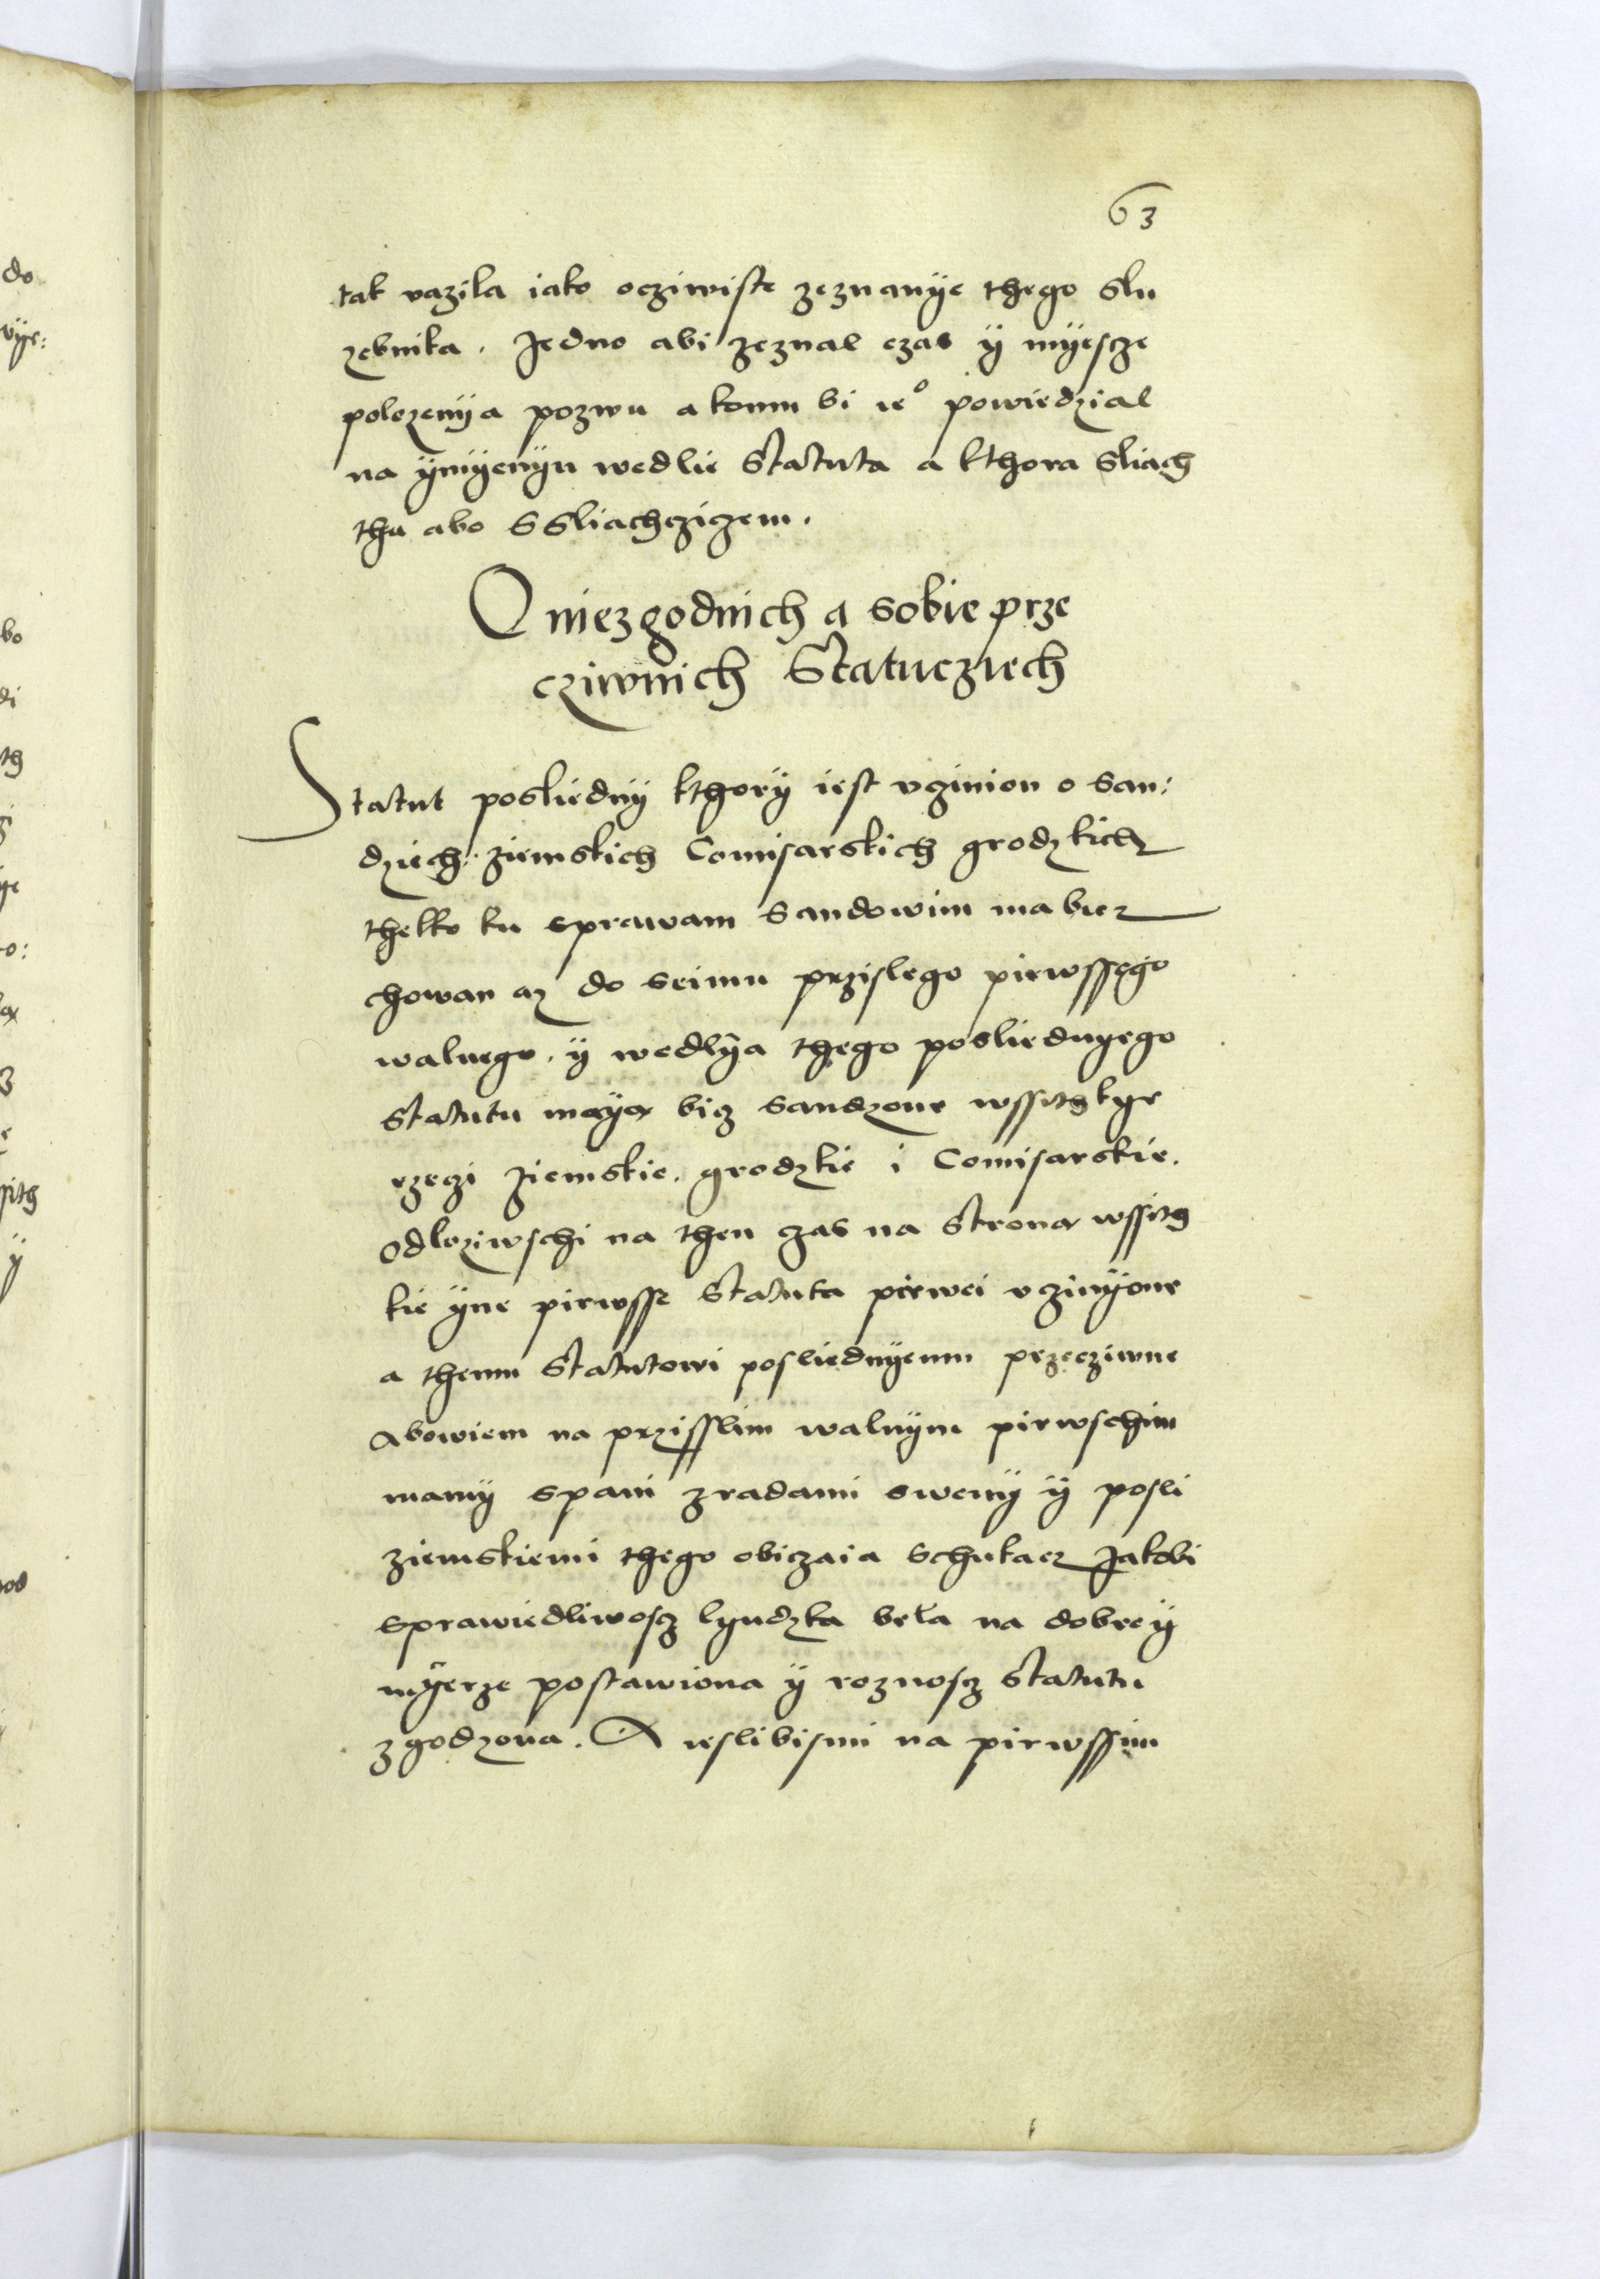 63
tak vazila iako ocziwiste zeznanÿe thego slu
zebnika. Jedno abi zeznal czas ÿ mÿescze
polozenÿa pozwu a komu bi ie° powiedzial
na ÿmÿenÿu wedlie Statuta a kthora sliach
tha abo s sliachczizem.
O niezgodnich a sobie prze
cziwnich Statucziech
Statut posliednÿ kthorÿ iest vczinion o san:
dziech: ziemskich Comisarskich grodzkich
thelko ku sprawam sandowim ma bicz
chowan az do seimu przislego pirwssego
walnego. ÿ wedlÿa thego posliednyego
statutu maÿa bicz sandzone wssitzkye
rzeczi ziemskie. grodzkie i Comisarskie.
odloziwschi na then czas na strona wssitz
kie ÿne pirwsse Statuta pierwei vczinÿone
a themu Statutowi posliednÿemu przecziwne
abowiem na przisslim walnÿm pirwschim
mamÿ s pani z radami swemÿ ÿ posli
ziemskiemi thego obiczaia schukacz Jakobi
sprawiedliwoscz lyudzka beła na dobreÿ
mÿerze postawiona ÿ roznoscz statutu
zgodzona. A ieslibismi na pirwssim
do
vÿe:
bo
di
tz
o:
sitz
ÿ